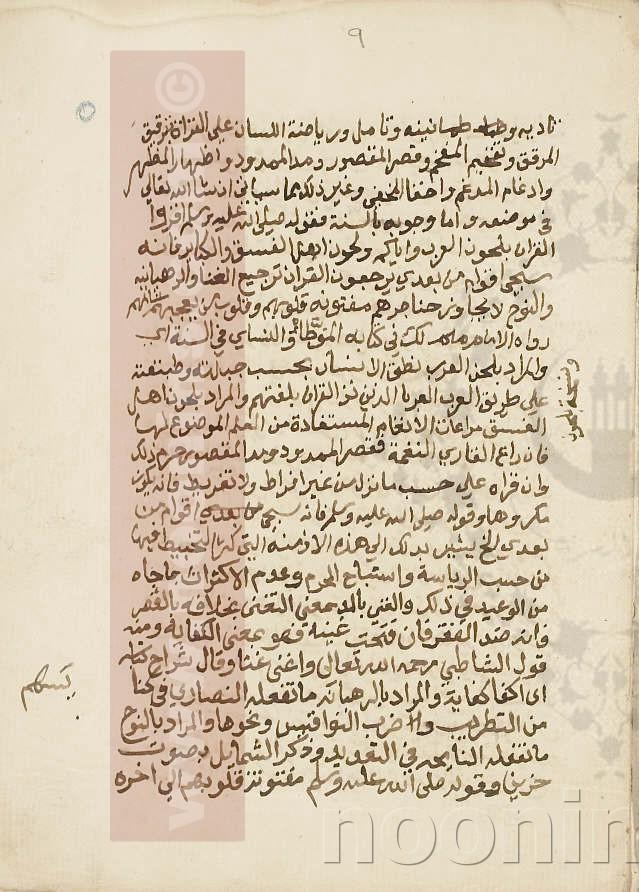 ٩
تاديه وطمانينه وتامل ورياضة اللسان على القراة بترقيق
المرقق وتفخيم المفخم وقصر المقصور ومد الممدود واظهار المظهر
وادغام المدغم واخفا المخفى وغير ذلك مما سياتى ان شا الله تعالى
فى موضعه واما وجوبه بالسنة فقوله صلى الله عليه وسلم اقروا
القران بلحون العرب واياكم ولحون اهل الفسق والكباير فانه
سيجى اقوام من بعدي يرجعون القران ترجيع الغنا والرهبانيه
والنوح لا يجاوز حناجرهم مفتونه قلوبهم وقلوب من يعجبهم شانهم
رواه الامام مالك في كتابه الموطا والنساي في السنة اي
والمراد بلحن العرب نطق الانسان بحسب جبلته وطبيعته
على طريق العرب العربا الذين نزل القران بلغتهم والمراد بلحون اهل
الفسق مراعات الانغام المستفادة من العلم الموضوع لها
فان راع القاري النغمة فقصر الممدود ومد المقصور حرم ذلك
وان قراه على حسب ما نزل من غير افراط ولا تفريط فانه يكون
مكروها وقوله صلى الله عليه وسلم فانه سيجى من بعدي اقوام من
بعدي الخ يشير بذلك الى هذه الازمنه التي كثر التخبيط فيها
من حسب الرياسة واستباح المحرم وعدم الاكتراث بما جاه
من الوعيد في ذلك والغنى بالمد بمعنى التغنى بخلافه بالقصر
وانه ضد الفقر فان فتحت غينه فهو بمعنى الكفاية ومنه
قول الشاطبي رحمه الله تعالى واغنى غنا وقال شراح كتابه
اى اكفا كفاية والمراد بالرهبانه ما تفعله النصارى في كنا
من التطريب والضرب النواقيس ونحوها والمراد بالنوح
ما تفعله النايحه في التعديد وذكر الشمايل بصوت
حزين وقوله صلى الله عليه وسلم مفتونة قلوبهم الى اخره
يسهم
noonin